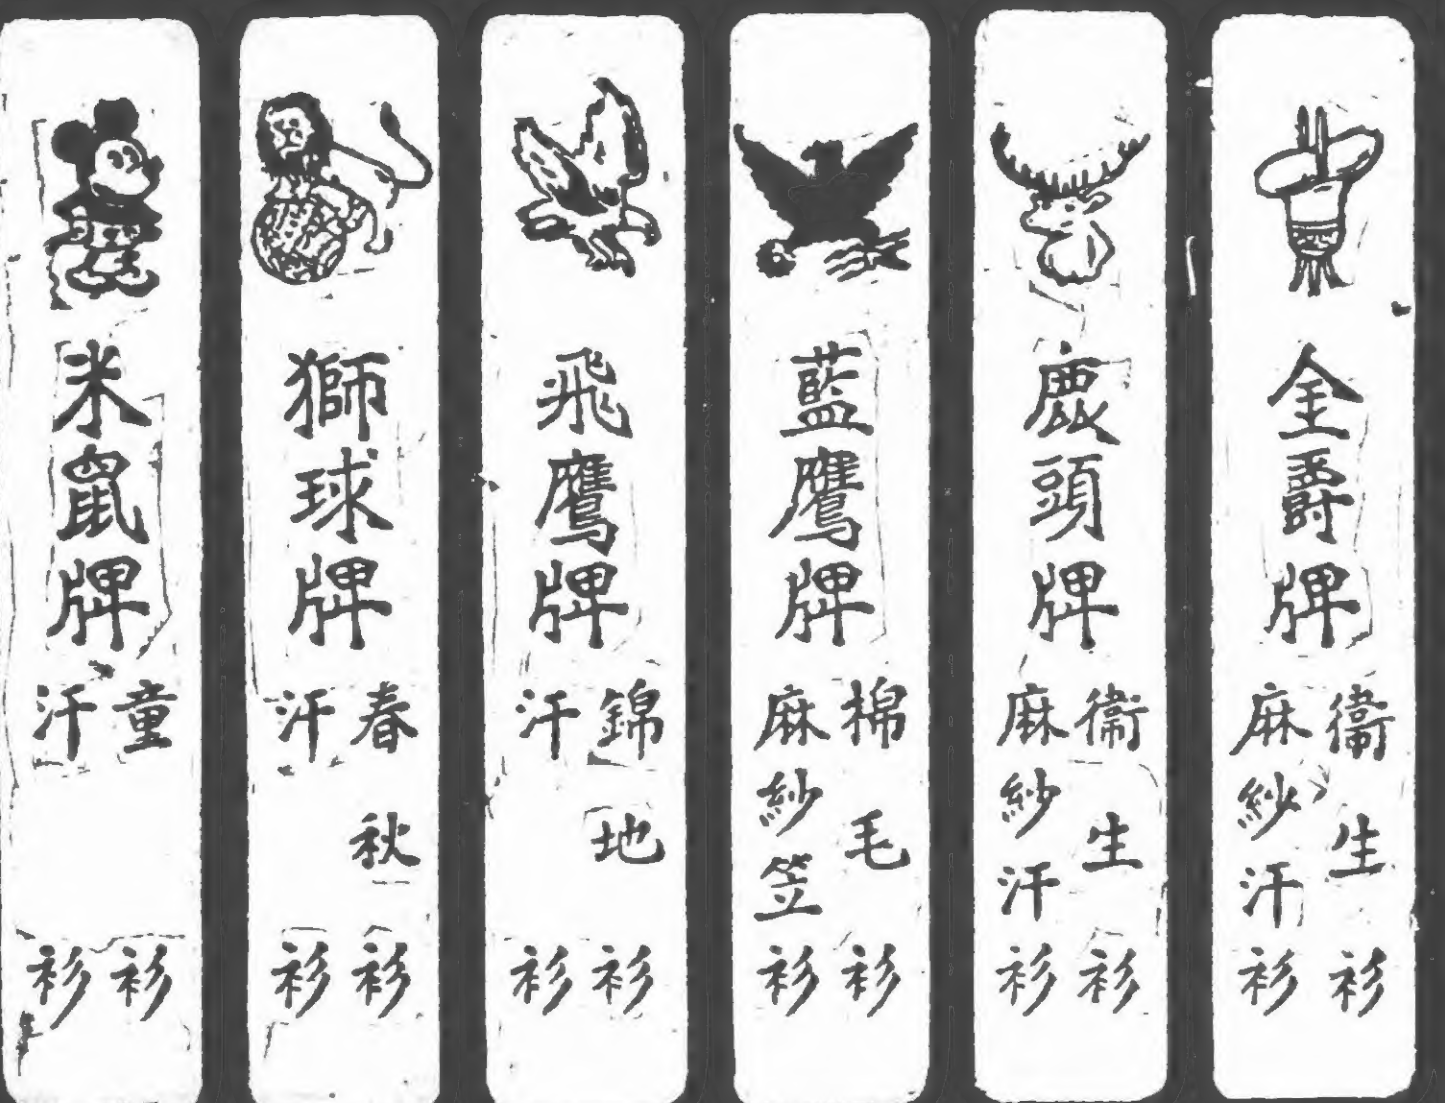 金爵牌
衞生衫
麻紗汗衫
鹿頭牌
衞生衫
麻紗汗衫
藍鷹牌
棉毛衫
麻紗笠衫
飛鷹牌
錦地衫
汗衫
獅球牌
春秋衫
汗衫
米鼠牌
童衫
汗衫